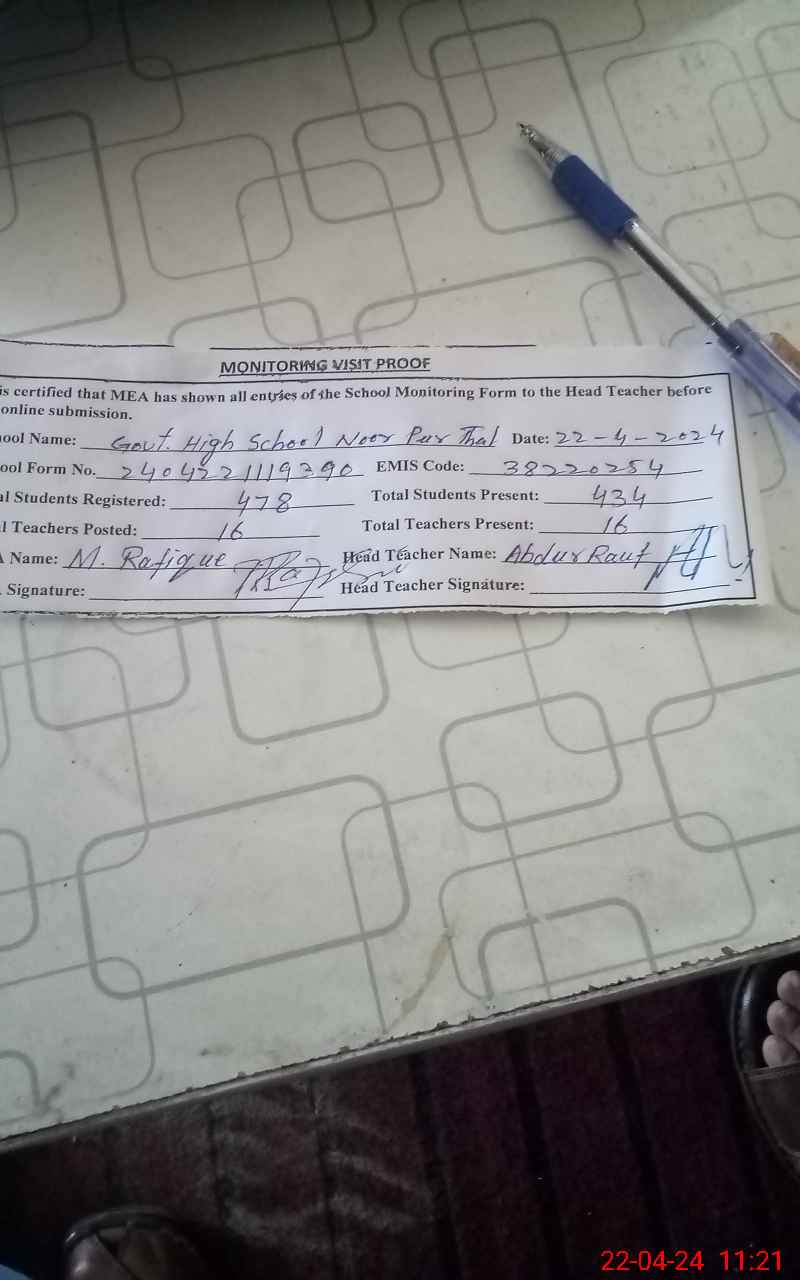 MONITORING VISIT PROOF
is certified that MEA has shown all entries of the School Monitoring Form to the Head Teacher before
online submission.
ool Name: Govt. High School Noor Pur Thal Date: 22-4-2024
ool Form No. EMIS Code: 38220254
al Students Registered: 478 Total Students Present: 434
l Teachers Posted: 16 Total Teachers Present: 16
A Name: M. Rafique Head Teacher Name: Abdur Rauf
Signature: Head Teacher Signature:
22-04-24 11:21